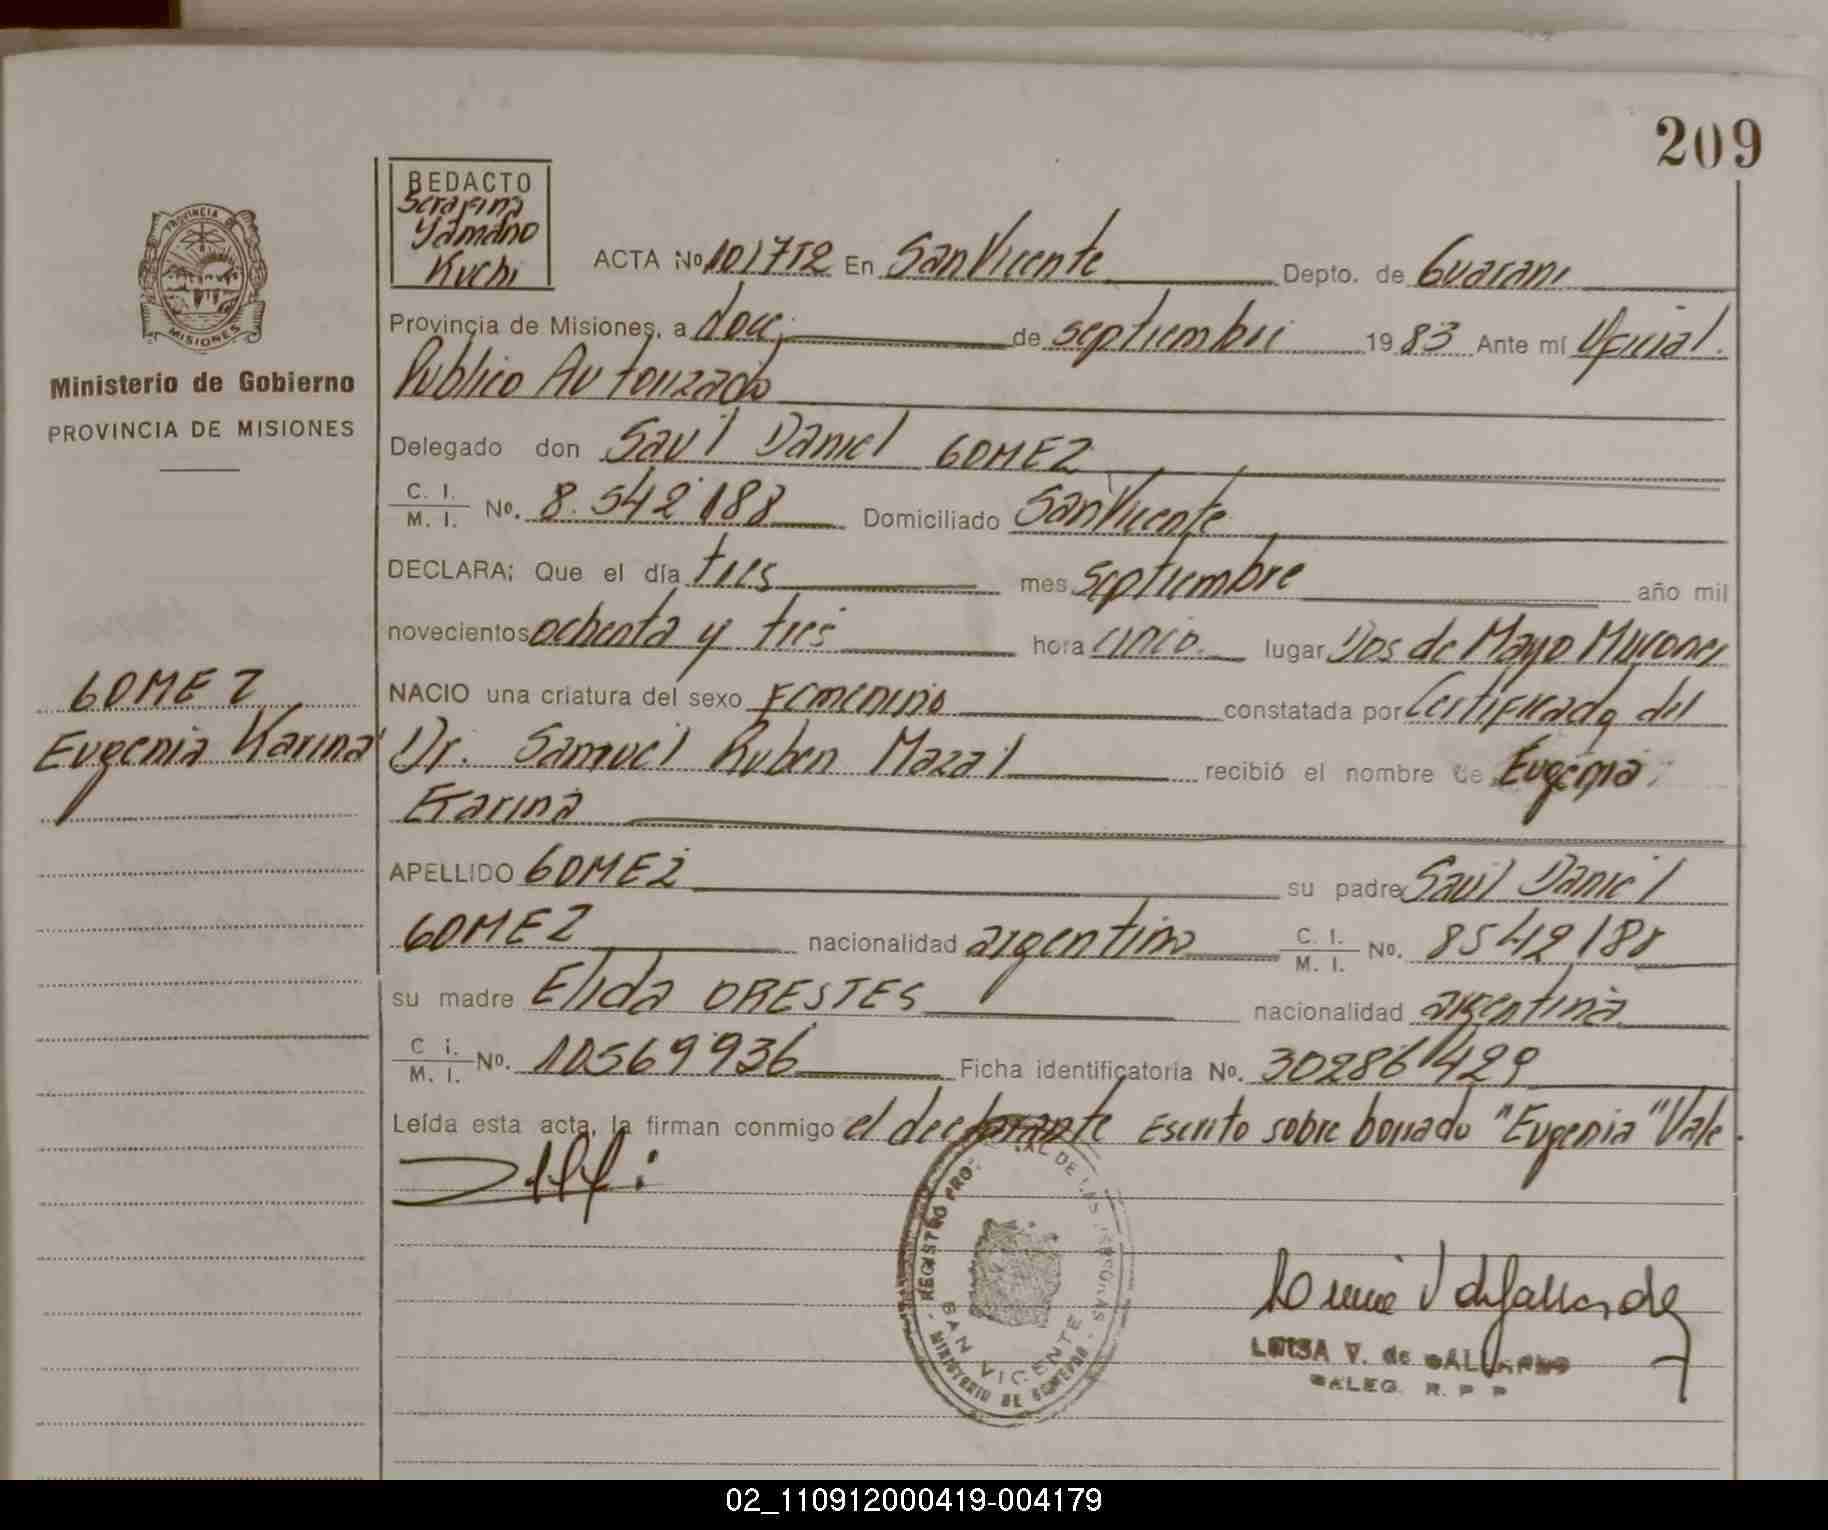 209
PROVINCIA DE
MISIONES
Ministerio de Gobierno
PROVINCIA DE MISIONES
GOMEZ
Eugenia Karina
REDACTO
Serafina
Yamano
Kuchi
ACTA Nº 101752 En San Vicente Depto. de Guarani
Provincia de Misiones, a doce de septiembre 1983 Ante mí Oficial
Publico Autorizado
Delegado don Saul Daniel GOMEZ
C. I.
M. I. Nº. 8.542188 Domiciliado San Vicente
DECLARA; Que el día tres mes Septiembre año mil
novecientos ochenta y tres hora cinco. lugar Dos de Mayo Misiones
NACIO una criatura del sexo Femenino constatada por Certificado del
Dr. Samuel Ruben Mazal recibió el nombre de Eugenia
Karina
APELLIDO GOMEZ su padre Saul Daniel
GOMEZ nacionalidad argentina C. I. M. I. No. 8542188
su madre Elida ORESTES nacionalidad argentina
C i.
M. I. Nº. 10569936 Ficha identificatoria No. 30286429
Leída esta acta, la firman conmigo el declarante Escrito sobre borrado "Eugenia" Vale.
REGISTRO PRO AL DE LAS PERSONAS
SAN VICENTE
MINISTERIO DE GOBIERNO
LUISA V. de GALLARDO
DALEG. R. P. P
02_110912000419-004179